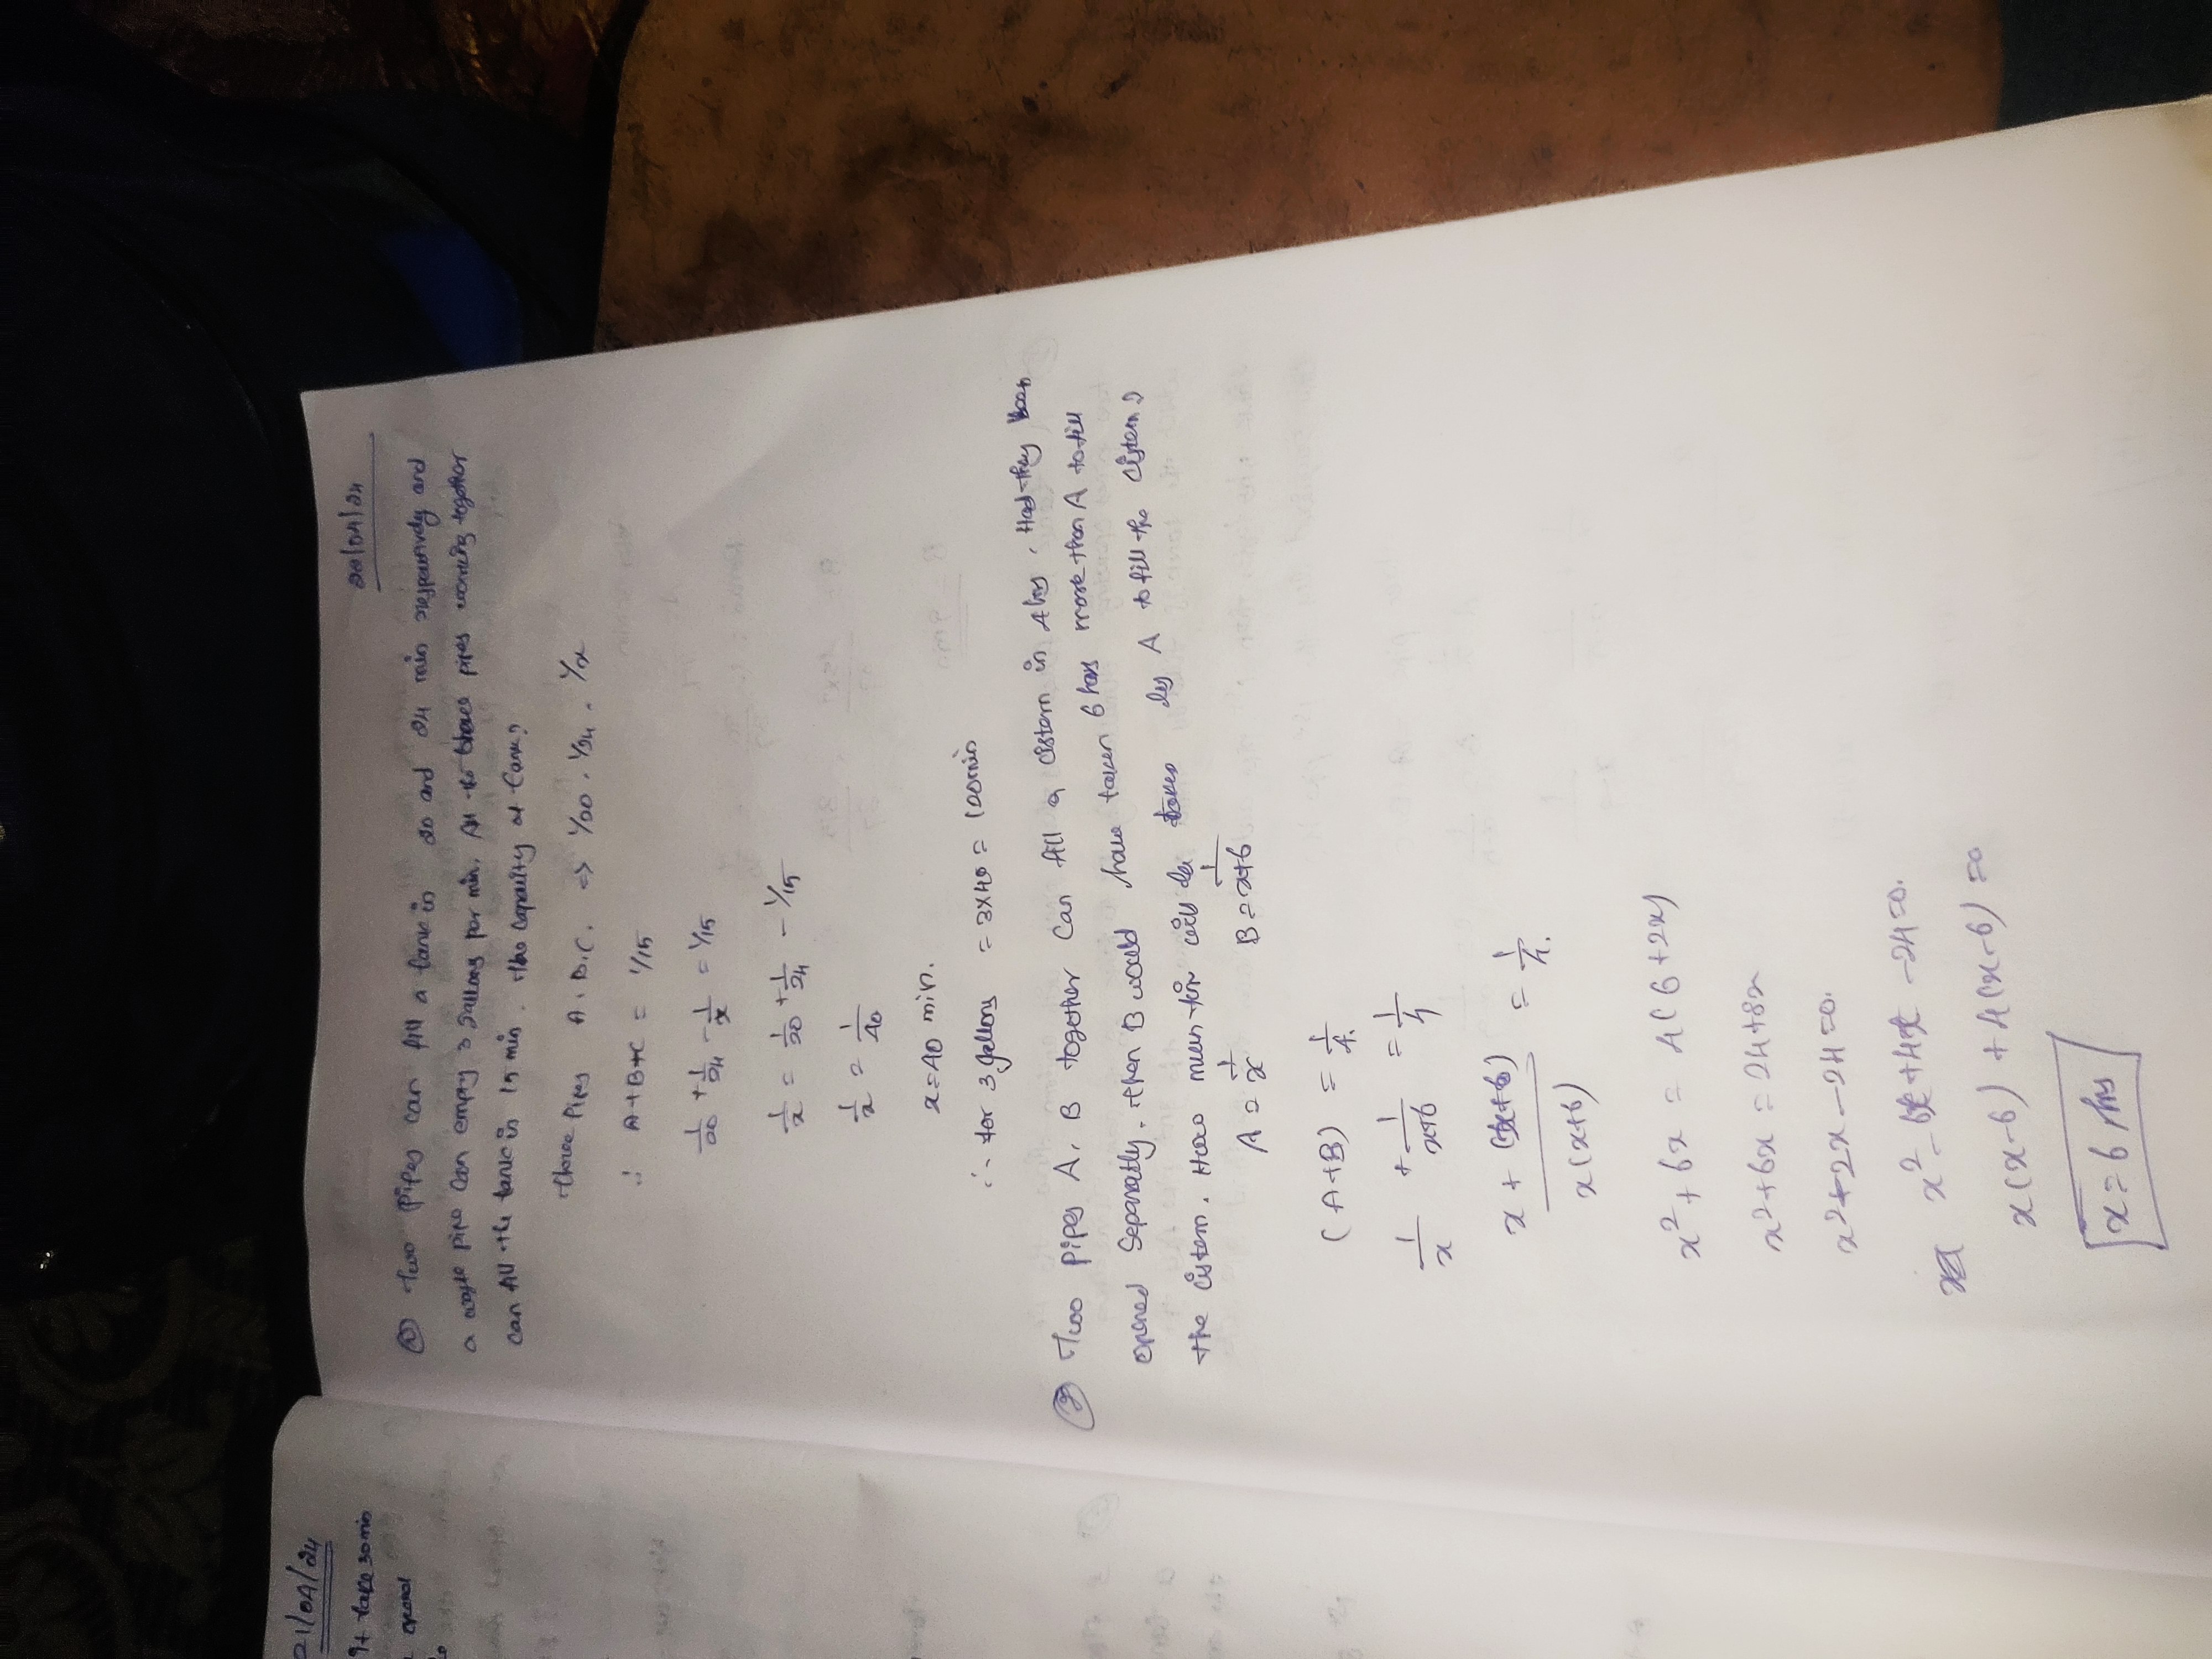 21/04/24
It take 30 min
opened
22/04/24
② Two pipes can fill a tank in 20 and 24 min respectively and
a waste pipe can empty 3 gallons per min. All the three pipes working together
can fill the tank in 15 min. The capacity of tank?
Three Pipes A, B, C. => 1/20, 1/24, 1/x
∴ A+B+C = 1/15
1/20 + 1/24 - 1/x = 1/15
1/x = 1/20 + 1/24 - 1/15
1/x = 1/40
x = 40 min.
∴ for 3 gallons = 3x40 = 120min
③ Two pipes A, B together can fill a cistern in 4 hrs. Had they been
opened Separatly. then B would have taken 6 hrs more than A to fill
the cistern. How much time will be taken by A to fill the cistern?
A = 1/x B = 1/x+6
(A+B) = 1/4.
1/x + 1/x+6 = 1/4
x + (x+6) / x(x+6) = 1/4.
x² + 6x = 4(6+2x)
x²+6x = 24+8x
x²-2x-24=0.
x² - 6x + 4x - 24 = 0.
x(x-6) + 4(x-6) = 0
x = 6 hrs